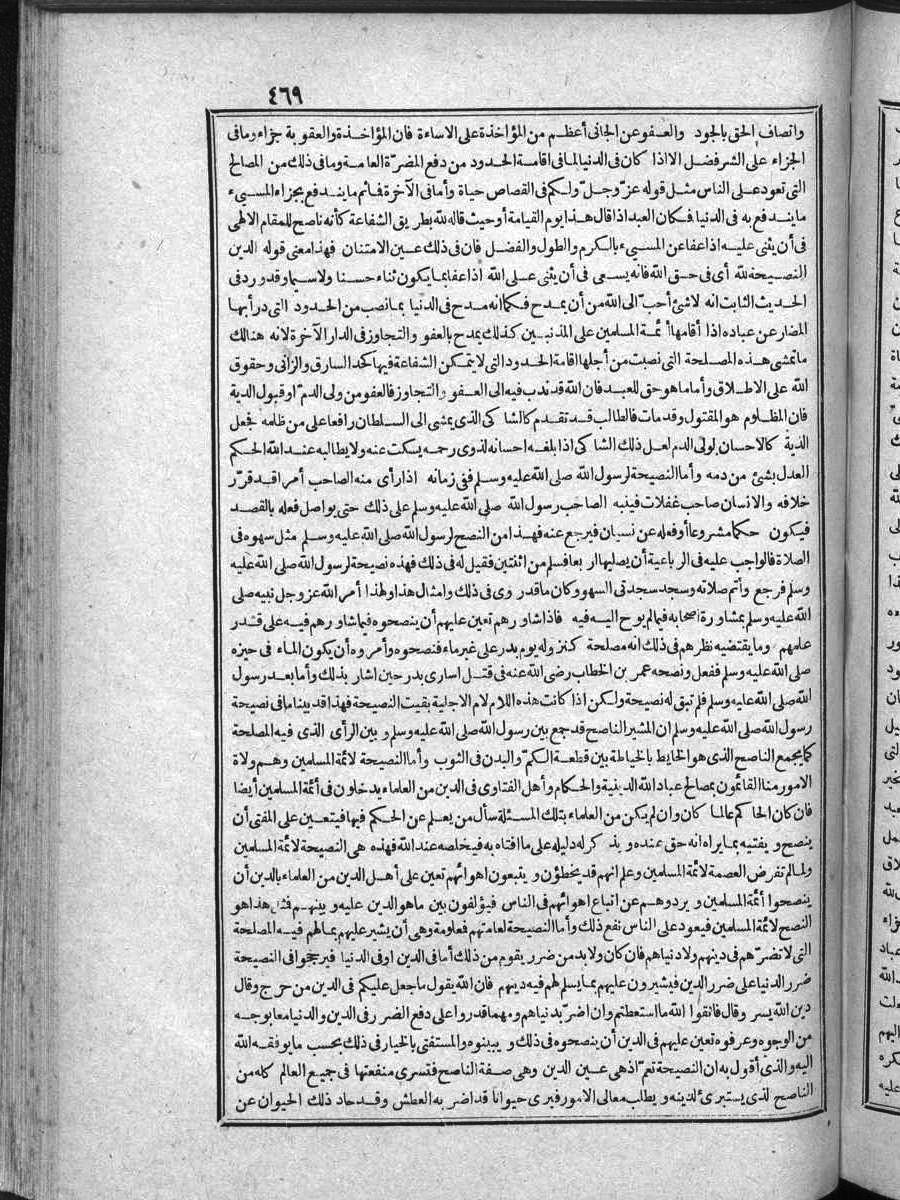 ٤٦٩
واتصاف الحق بالجود والعفو عن الجانى أعظم من المؤاخذة على الاساءة فان المؤاخذة والعقوبة جزاء وما فى
الجزاء على الشر فضل الا اذا كان فى الدنيا لما فى اقامة الحدود من دفع المضرّة العامة وما فى ذلك من المصالح
التى تعود على الناس مثل قوله عزّ وجلّ ولكم فى القصاص حياة وأما فى الآخرة فاثم ما يندفع بجزاء المسىء
ما يندفع به فى الدنيا فكان العبد اذا قال هذا يوم القيامة أو حيث قاله لله بطريق الشفاعة كأنه ناصح للمقام الالهى
فى أن يثنى عليه اذا عفا عن المسىء بالكرم والطول والفضل فان فى ذلك عين الامتنان فهذا معنى قوله الدين
النصيحة لله أى فى حق الله فانه يسعى فى أن يثنى على الله اذا عفا بما يكون ثناء حسنا ولا سيما وقد ورد فى
الحديث الثابت انه لا شئ أحبّ الى الله من أن يمدح فكما انه مدح فى الدنيا بما نصب من الحدود التى درأ بها
المضار عن عباده اذا أقامها أئمة المسلمين على المذنبين كذلك يمدح بالعفو والتجاوز فى الدار الآخرة لانه هنالك
ما تمشى هذه المصلحة التى نصبت من أجلها اقامة الحدود التى لا يتمكن الشفاعة فيها كحد السارق والزانى وحقوق
الله على الاطلاق وأما ما هو حق للعبد فان الله قد ندب فيه الى العفو والتجاوز فالعفو من ولى الدم أو قبول الدية
فان المظلوم هو المقتول وقد مات فالطالب قد تقدم كالشاكى الذى يمشى الى السلطان رافعا على من ظلمه فجعل
الدية كالاحسان لولى الدم لعل ذلك الشاكى اذا بلغه احسانه لذوى رحمه يسكت عنه ولا يطالبه عند الله الحكم
العدل بشئ من دمه وأما النصيحة لرسول الله صلى الله عليه وسلم ففى زمانه اذا رأى منه الصاحب أمرا قد قرّر
خلافه والانسان صاحب غفلات فينبه الصاحب رسول الله صلى الله عليه وسلم على ذلك حتى يواصل فعله بالقصد
فيكون حكما مشروعا أو فعله عن نسيان فيرجع عنه فهذا من النصح لرسول الله صلى الله عليه وسلم مثل سهوه فى
الصلاة فالواجب عليه فى الرباعية أن يصليها أربعا فسلم من اثنتين فقيل له فى ذلك فهذه نصيحة لرسول الله صلى الله عليه
وسلم فرجع وأتم صلاته وسجد سجدتى السهو وكان ما قد روى فى ذلك وأمثال هذا ولهذا أمر الله عز وجل نبيه صلى
الله عليه وسلم بمشاورة أصحابه فيما لم يوح اليه فيه فاذا شاورهم تعين عليهم أن ينصحوه فيما شاورهم فيه على قدر
علمهم وما يقتضيه نظرهم فى ذلك انه مصلحة كنزوله يوم بدر على غير ماء فنصحوه وأمروه أن يكون الماء فى حيزه
صلى الله عليه وسلم ففعل ونصحه عمر بن الخطاب رضى الله عنه فى قتل اسارى بدر حين أشار بذلك وأما بعد رسول
الله صلى الله عليه وسلم فلم تبق له نصيحة ولكن اذا كانت هذه اللام لام الاجلية بقيت النصيحة فهذا قد بينا ما فى نصيحة
رسول الله صلى الله عليه وسلم ان المشير الناصح قد جمع بين رسول الله صلى الله عليه وسلم وبين الرأى الذى فيه المصلحة
كما يجمع الناصح الذى هو الخايط بالخياطة بين قطعة الكمّ والبدن فى الثوب وأما النصيحة لائمة المسلمين وهم ولاة
الامور منا القائمون بمصالح عباد الله الدينية والحكام وأهل الفتاوى فى الدين من العلماء يدخلون فى أئمة المسلمين أيضا
فان كان الحاكم عالما كان وان لم يكن من العلماء بتلك المسئلة سأل من يعلم عن الحكم فيها فيتعين على المفتى أن
ينصح ويفتيه بما يراه انه حق عنده ويذكر له دليله على ما أفتاه به فيخلصه عند الله فهذه هى النصيحة لائمة المسلمين
ولما لم تفرض العصمة لائمة المسلمين وعلم انهم قد يخطؤن ويتبعون اهوائهم تعين على أهل الدين من العلماء بالدين أن
ينصحوا أئمة المسلمين ويردوهم عن اتباع اهوائهم فى الناس فيؤلفون بين ما هو الدين عليه وبينهم فمثل هذا هو
النصح لائمة المسلمين فيعود على الناس نفع ذلك وأما النصيحة لعامتهم فعلومة وهى أن يشير عليهم بما لهم فيه المصلحة
التى لا تضرّهم فى دينهم ولا دنياهم فان كان ولا بد من ضرر يقوم من ذلك أما فى الدين أو فى الدنيا فيرجحوا فى النصيحة
ضرر الدنيا على ضرر الدين فيشيرون عليهم بما يسلم لهم فيه دينهم فان الله يقول ما جعل عليكم فى الدين من حرج وقال
دين الله يسر وقال فاتقوا الله ما استطعتم وان أضرّ بدنياهم ومهما قدروا على دفع الضرر فى الدين والدنيا معا بوجه
من الوجوه وعرفوه تعين عليهم فى الدين أن ينصحوه فى ذلك ويبينوه والمستفتى بالخيار فى ذلك بحسب ما يوفقه الله
اليه والذى أقول به ان النصيحة تعمّ اذ هى عين الدين وهى صفة الناصح فتسرى منفعتها فى جميع العالم كله من
الناصح الذى يستبرئ لدينه ويطلب معالى الامور فيرى حيوانا قد اضر به العطش وقد حاد ذلك الحيوان عن